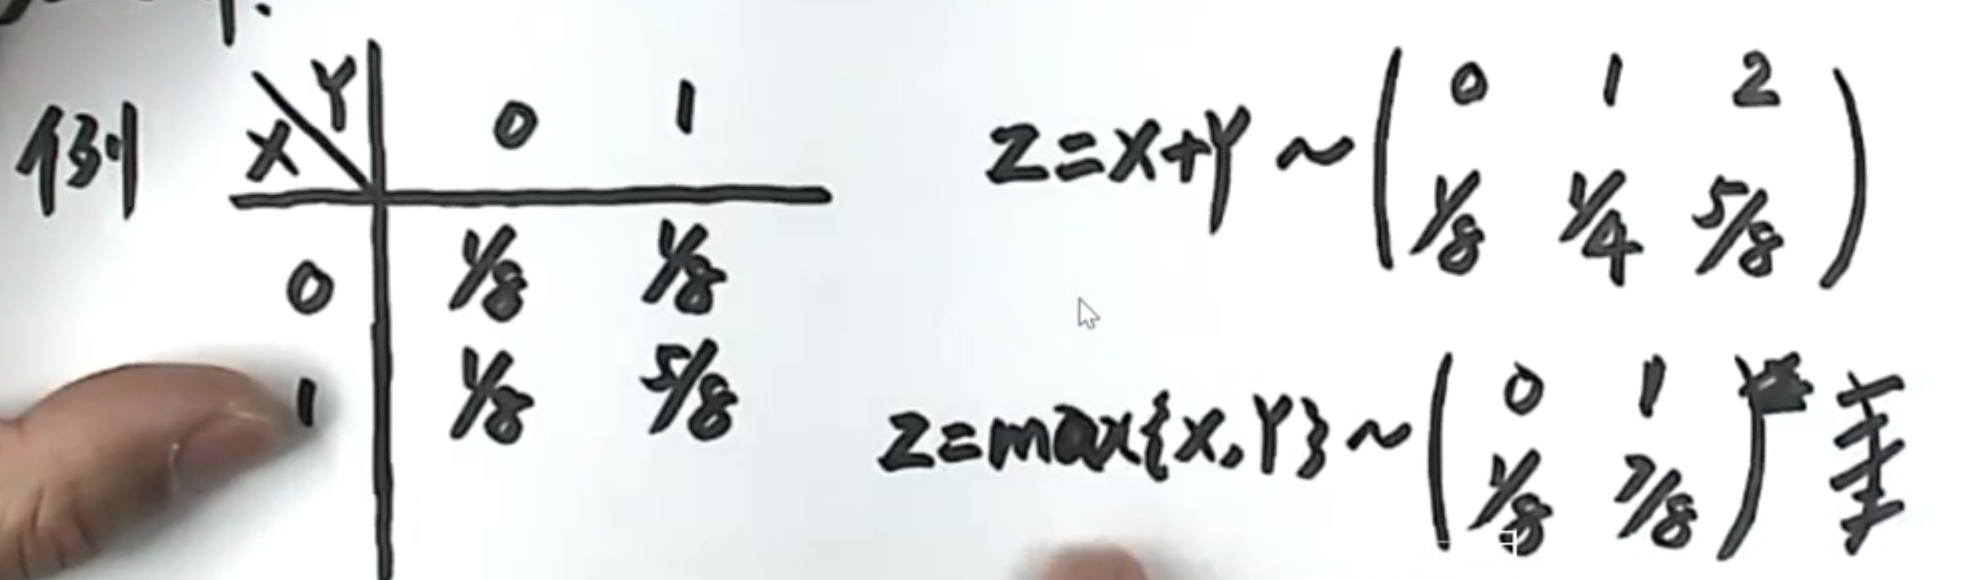 例
X Y 0 1
0 1/8 1/8
1 1/8 5/8
Z=X+Y ~ ( 0 1 2
1/8 1/4 5/8 )
Z=max{X,Y} ~ ( 0 1
1/8 7/8 )